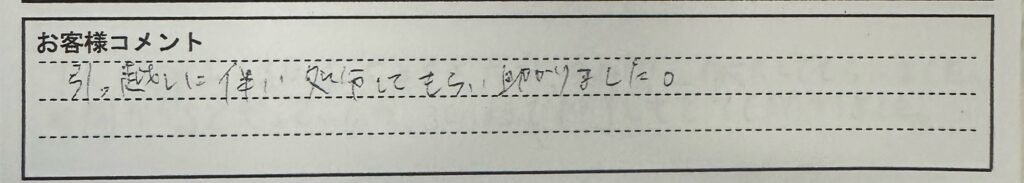 お客様コメント
引っ越しに伴い処分してもらい助かりました。